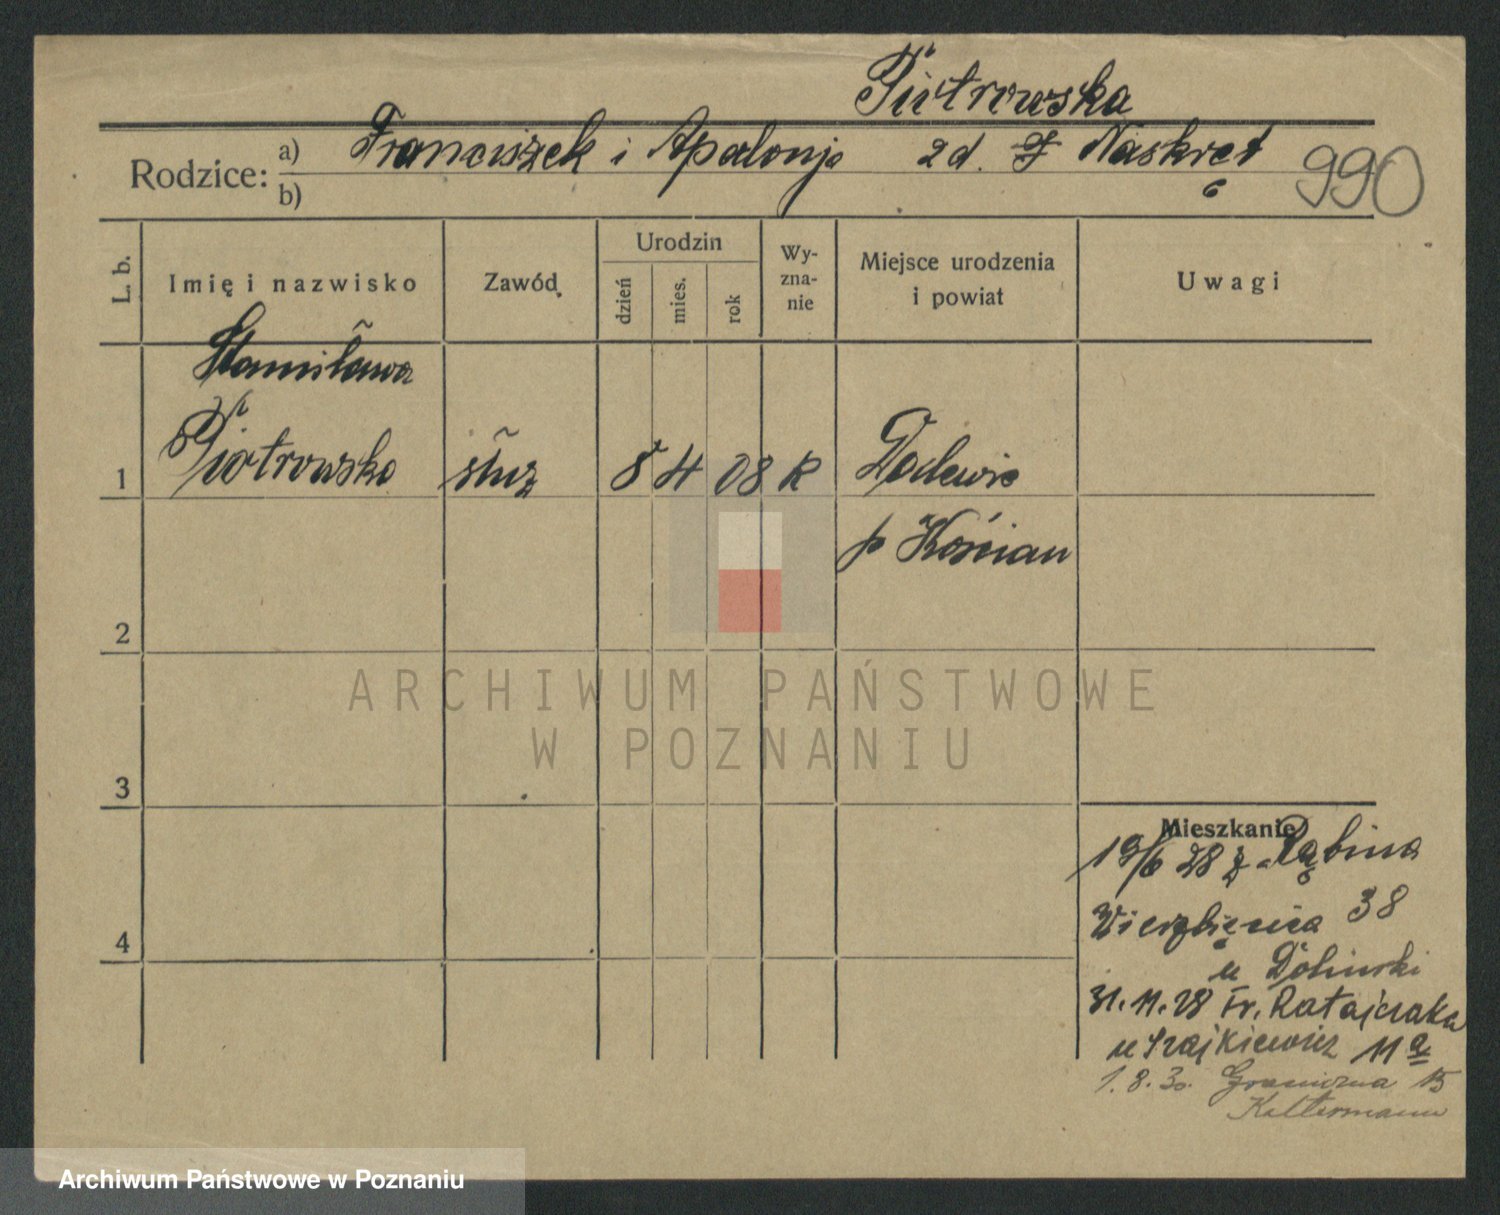 Piotrowska
Rodzice: a) Franciszek i Apolonja zd. Naskręt
b)
990
L. b.
Imię i nazwisko
Zawód
Urodzin
dzień
mies.
rok
Wy-
zna-
nie
Miejsce urodzenia
i powiat
Uwagi
Stanisława
1 Piotrowska służ 8 4 08 K Dalewie
p Kościan
2
3
4
Mieszkanie
19/6 28 z Rąbina
Wierzbięcice 38
u Doliński
31.11.28 Fr. Ratajczaka
u Szajkiewicz 11a
1.8.30 Graniczna 15
Keltermann
ARCHIWUM PAŃSTWOWE
W POZNANIU
Archiwum Państwowe w Poznaniu